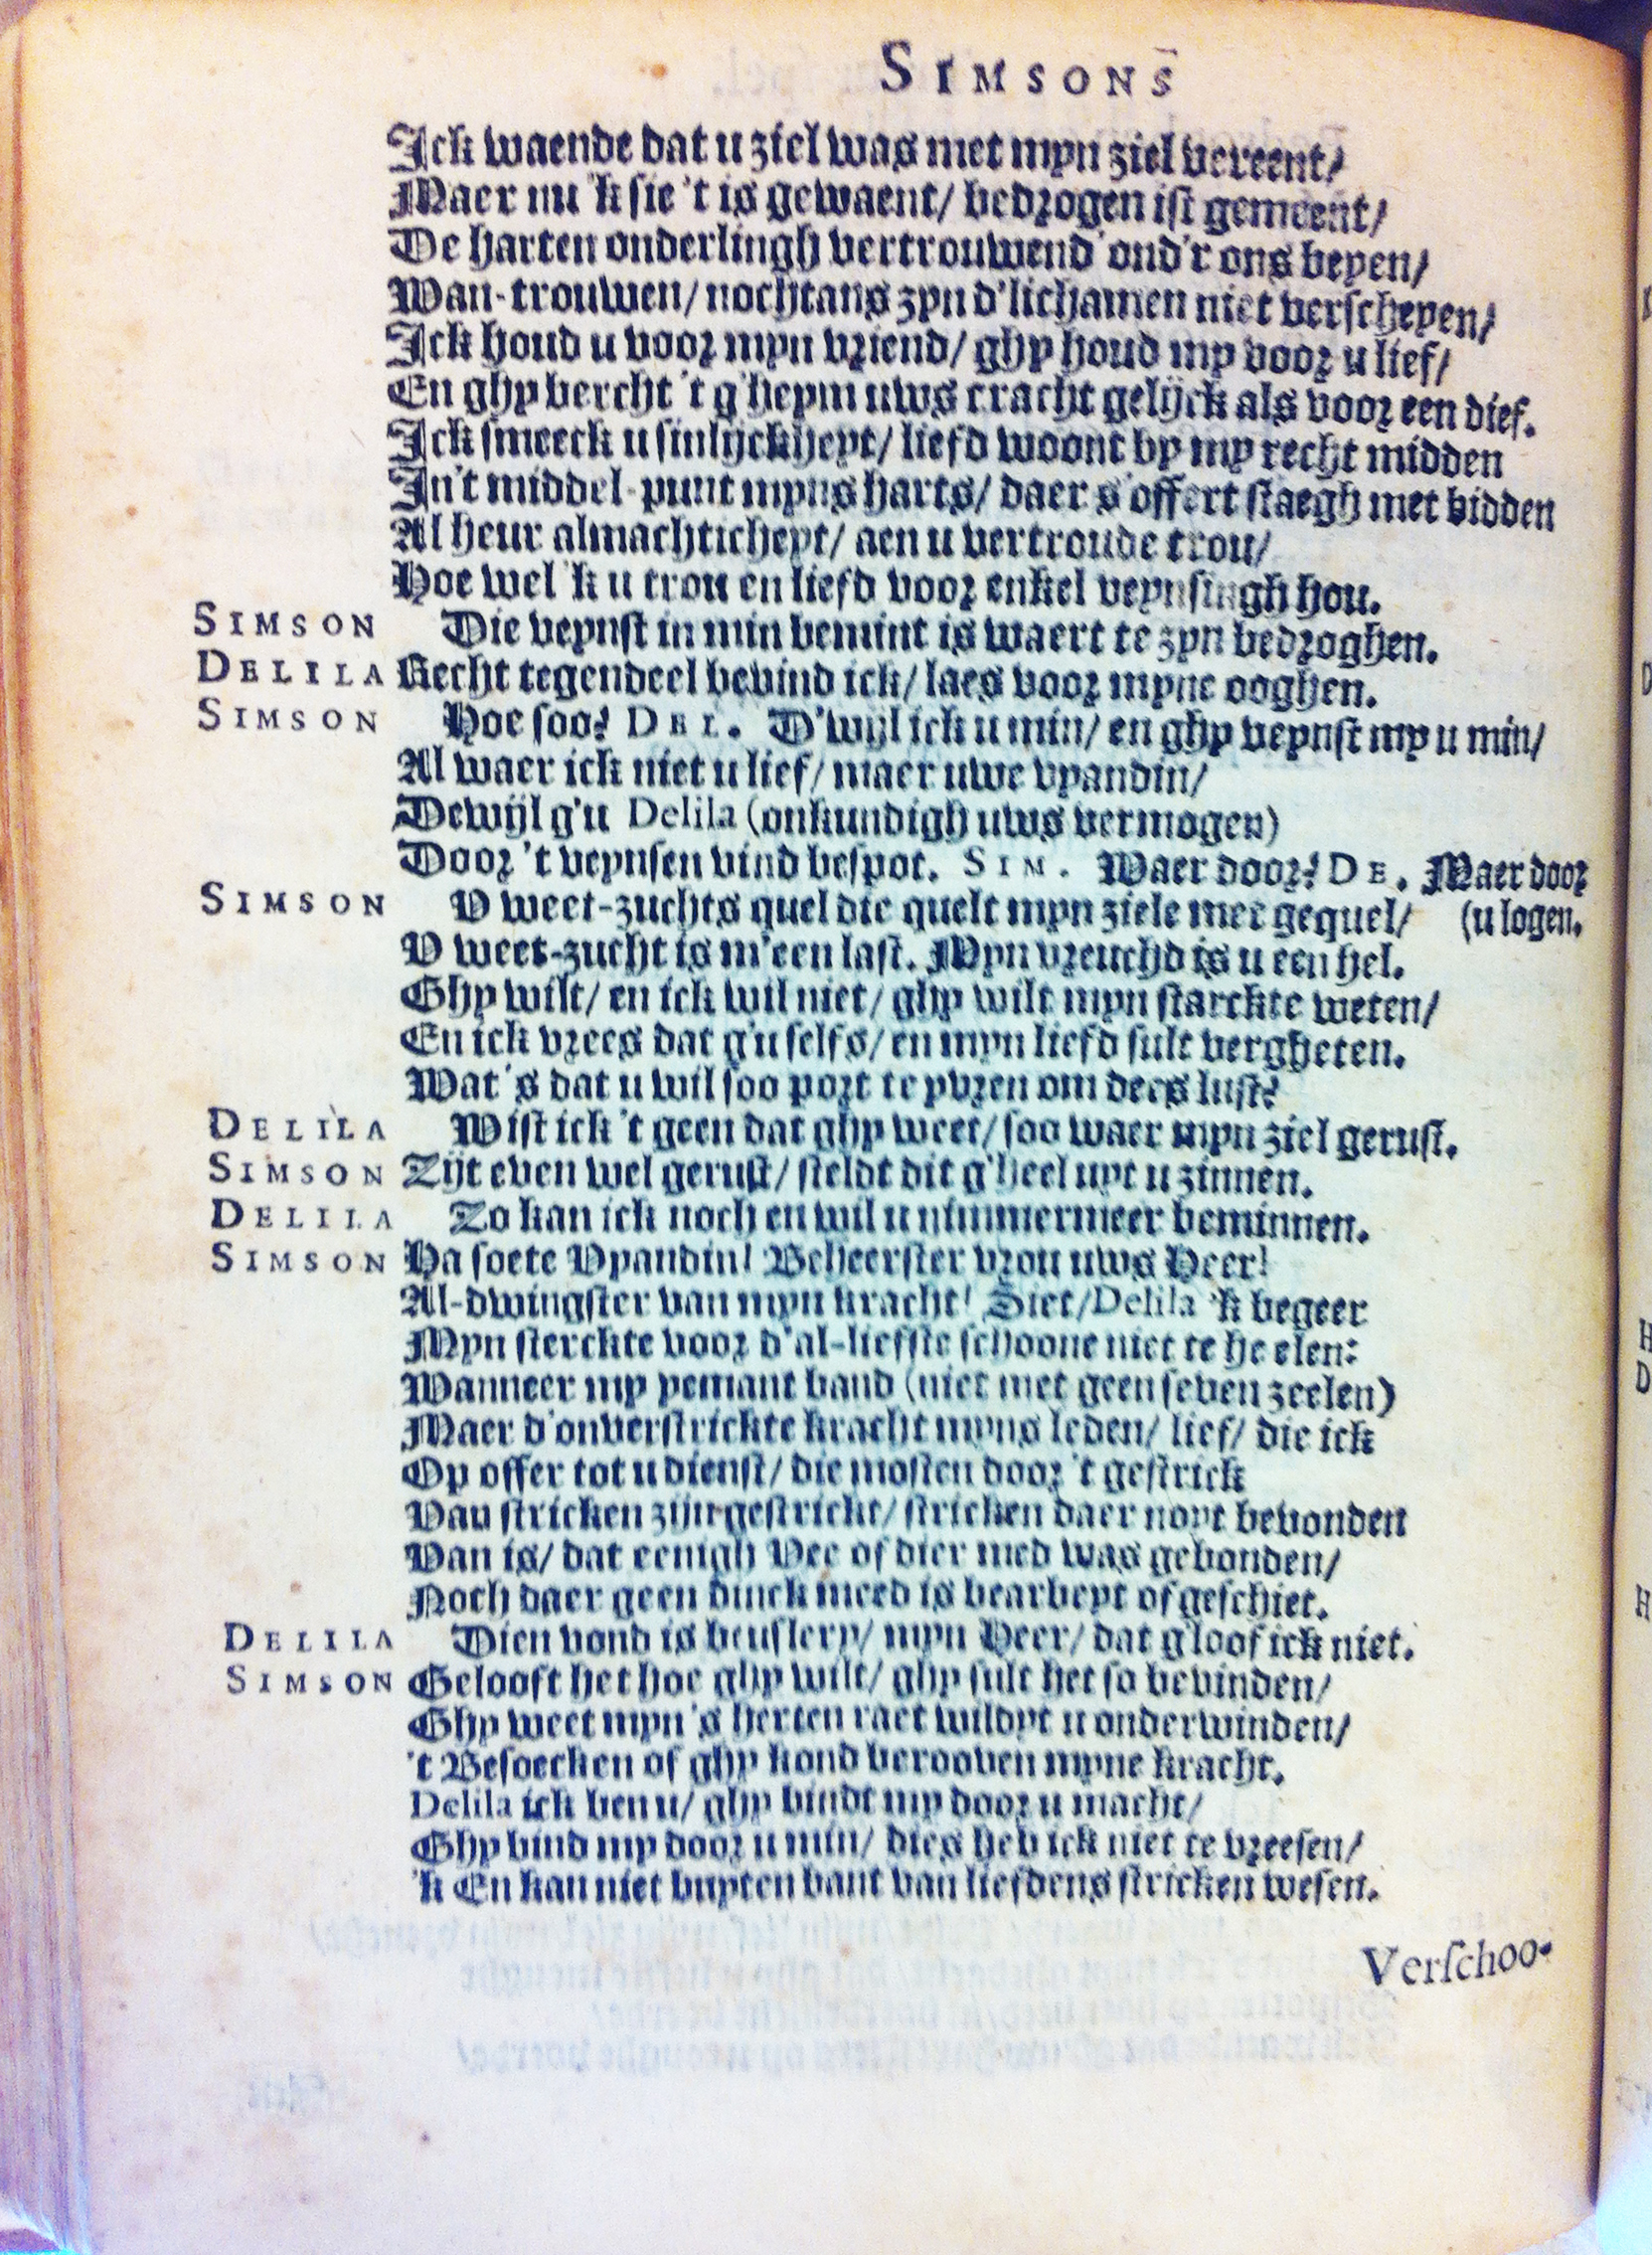 SIMSONS
Ick waende dat u ziel was met myn ziel vereent/
Maer nu 'k sie 't is gewaent/ bedrogen ist gemeent/
De harten onderlingh vertrouwend' ond'r ons beyen/
Wan-trouwen/ nochtans zyn d'lichamen niet verscheyen/
Ick houd u voor myn vriend/ ghy houd my voor u lief/
En ghy bercht 't g'heym uws cracht gelijck als voor een dief.
Ick smeeck u sinlijckheyt/ liefd woont by my recht midden
In't middel-punt myns harts/ daer s'offert staegh met bidden
Al heur almachticheyt/ aen u vertroude trou/
Hoe wel 'k u trou en liefd voor enkel veynsingh hou.
SIMSON Die veynst in min bemint is waert te zyn bedroghen.
DELILA Recht tegendeel bevind ick/ laes voor myne ooghen.
SIMSON Hoe soo? DEL. D'wijl ick u min/ en ghy veynst my u min/
Al waer ick niet u lief/ maer uwe vyandin/
Dewijl g'u Delila (onkundigh uws vermogen)
Door 't veynsen vind bespot. SIM. Waer door? DE. Maer door
(u logen.
SIMSON V weet-zuchts quel die quelt myn ziele met gequel/
V weet-zucht is m'een last. Myn vreuchd is u een hel.
Ghy wilt/ en ick wil niet/ ghy wilt myn starckte weten/
En ick vrees dat g'u selfs/ en myn liefd sult vergheten.
Wat 's dat u wil soo port te pyren om dees lust?
DELILA Wist ick 't geen dat ghy weet/ soo waer myn ziel gerust.
SIMSON Zijt even wel gerust/ steldt dit g'heel uyt u zinnen.
DELILA Zo kan ick noch en wil u nimmermeer beminnen.
SIMSON Ha soete Vyandin! Beheerster vrou uws Heer!
Al-dwingster van myn kracht! Siet/ Delila 'k begeer
Myn sterckte voor d'al-liefste schoone niet te he elen:
Wanneer my yemant band (niet met geen seven zeelen)
Maer d'onverstrickte kracht myns leden/ lief/ die ick
Op offer tot u dienst/ die mosten door 't gestrick
Van stricken zijn gestrickt/ stricken daer noyt bevonden
Van is/ dat eenigh Vee of dier med was gebonden/
Noch daer geen dinck meed is bearbeyt of geschiet.
DELILA Dien vond is beuslery/ myn Heer/ dat g'loof ick niet.
SIMSON Gelooft het hoe ghy wilt/ ghy sult het so bevinden/
Ghy weet myn 's herten raet wildyt u onderwinden/
't Besoecken of ghy kond berooven myne kracht.
Delila ick ben u/ ghy bindt my door u macht/
Ghy bind my door u min/ dies heb ick niet te vreesen/
'k En kan niet buyten bant van liefdens stricken wesen.
Verschoo-